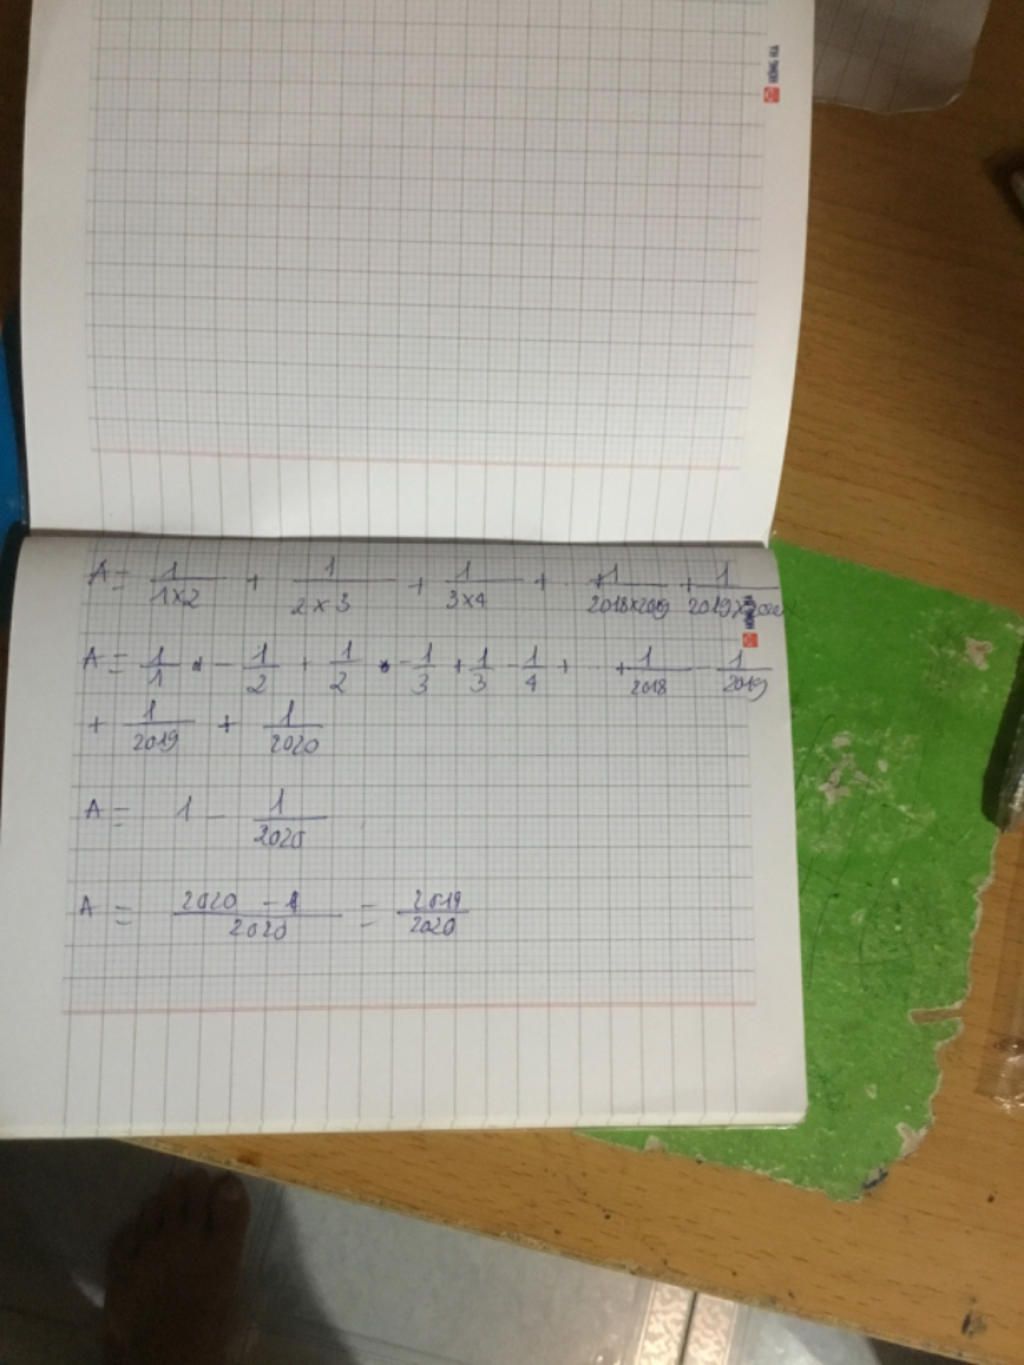 A = 1/(1×2) + 1/(2×3) + 1/(3×4) + ... + 1/(2018×2019) + 1/(2019×2020)
A = 1/1 - 1/2 + 1/2 - 1/3 + 1/3 - 1/4 + ... + 1/2018 - 1/2019
+ 1/2019 + 1/2020
A = 1 - 1/2020
A = (2020 - 1)/2020 = 2019/2020